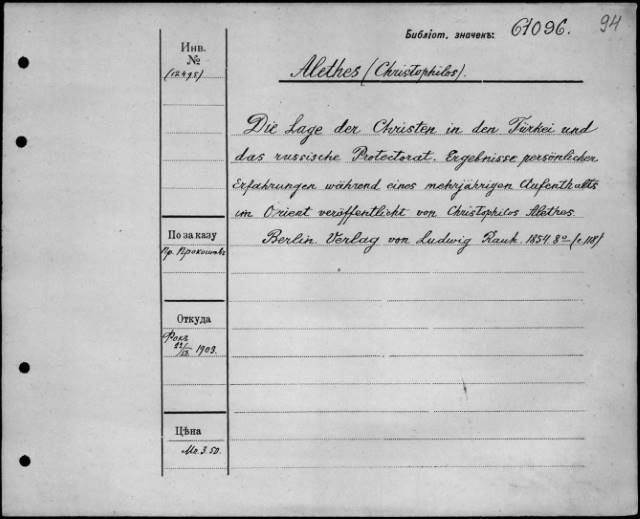 Библіот. значекъ: 61096. 94
Инв.
№
(12495)
Alethes (Christophilos).
Die Lage der Christen in den Türkei und
das russische Protectorat. Ergebnisse persönlicher
Erfahrungen während eines mehrjährigen Aufenthalts
im Orient veröffentlicht von Christophilos Alethes.
Berlin. Verlag von Ludwig Rauh. 1854. 8º (c. 118)
По заказу
Пр.
Откуда
Фокъ
1903.
Цѣна
Mr. 3.50.